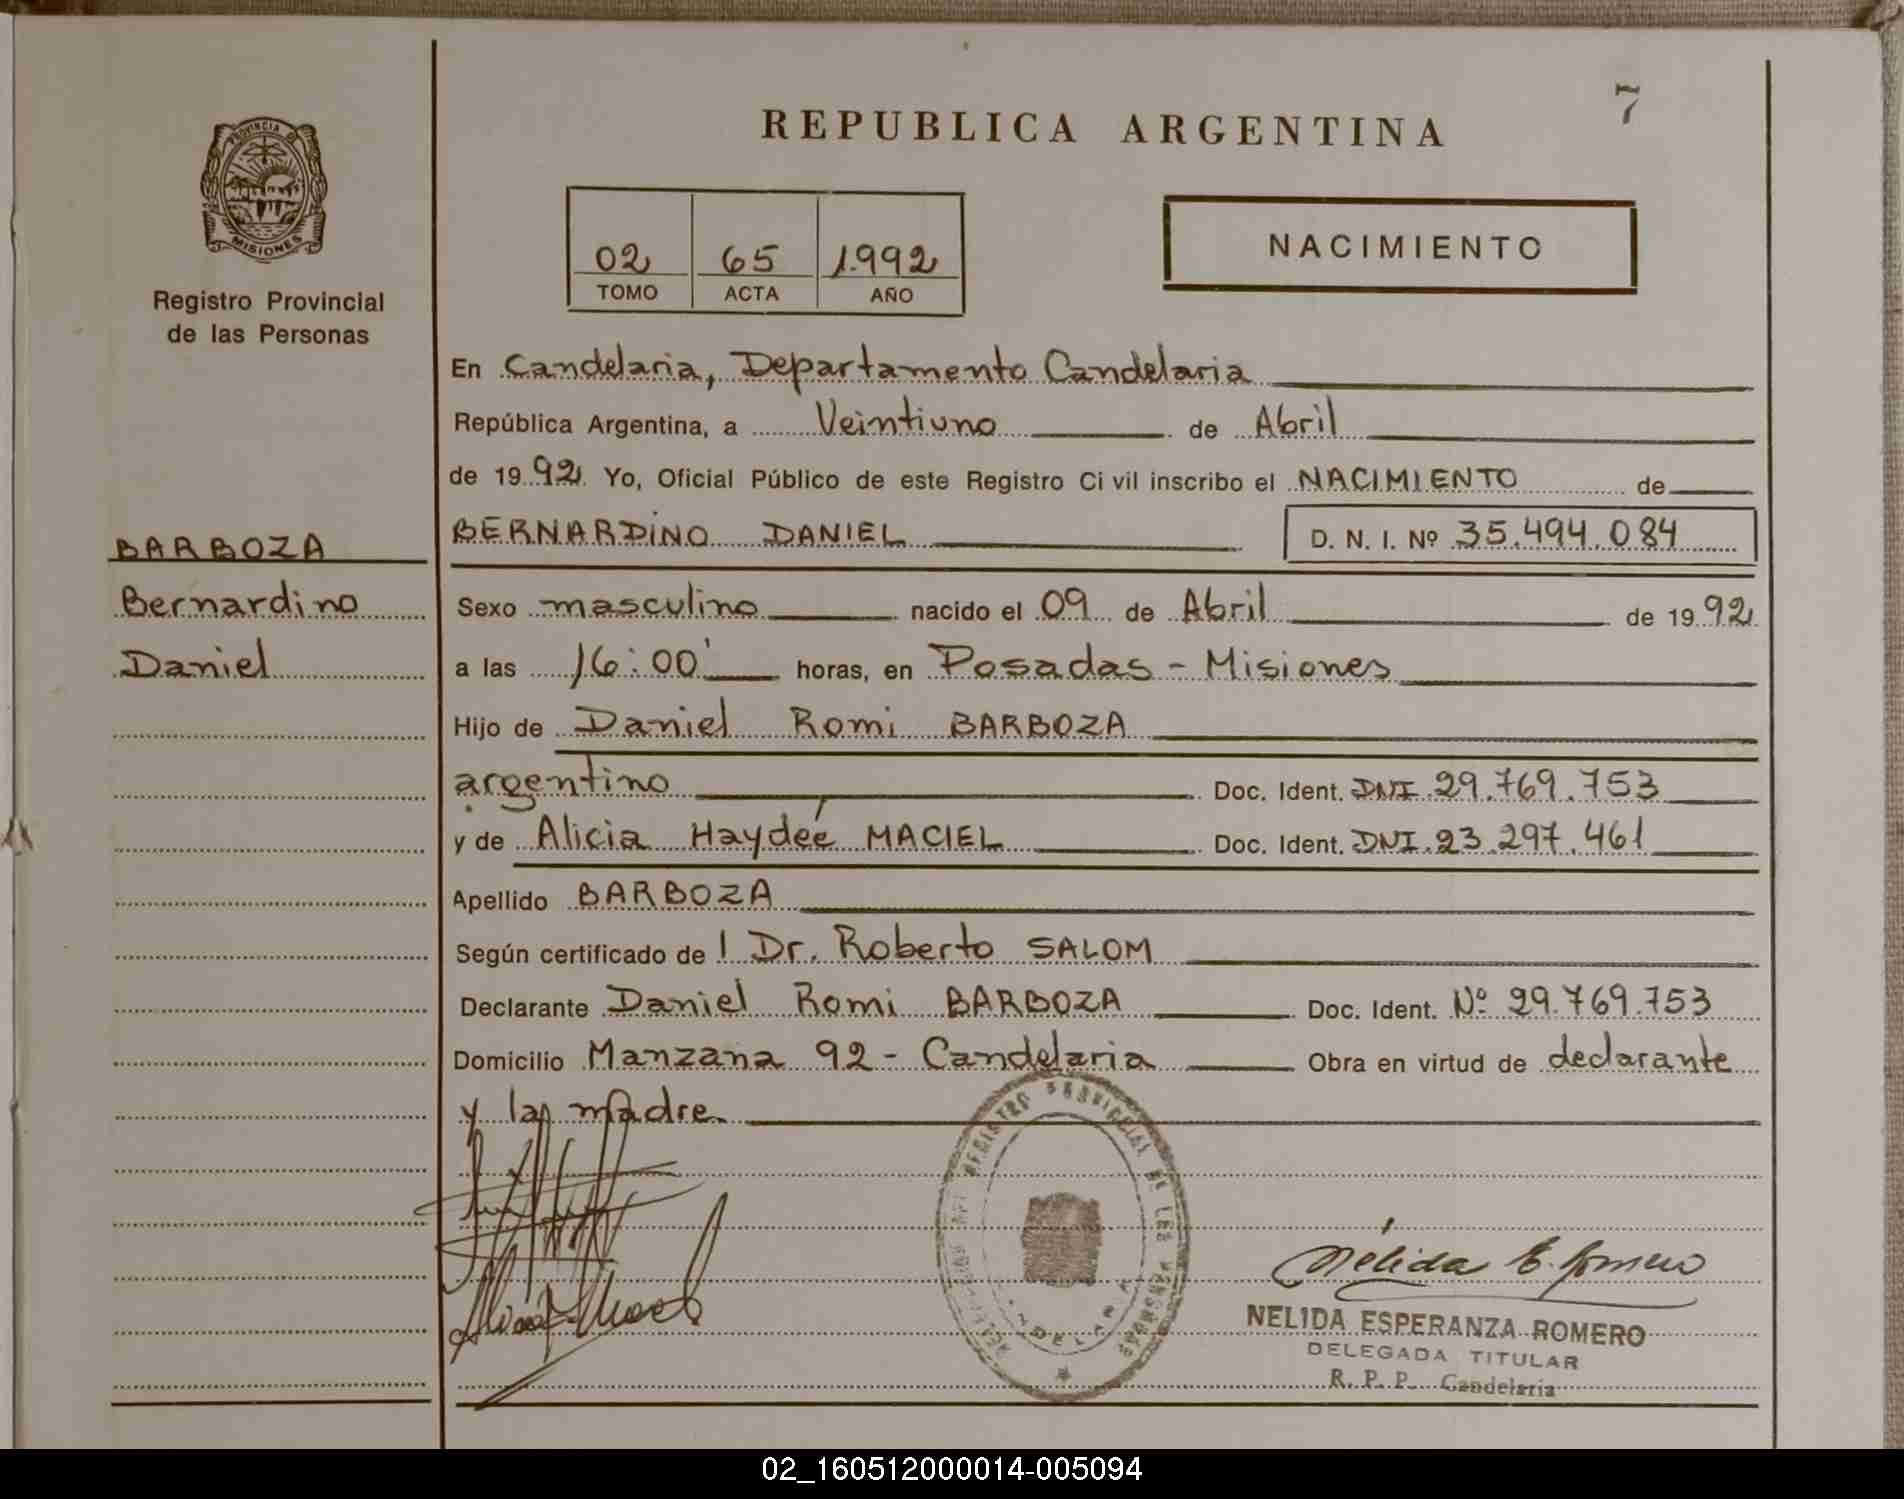 7
REPUBLICA ARGENTINA
PROVINCIA DE
MISIONES
Registro Provincial
de las Personas
02 65 1.992
TOMO ACTA AÑO
NACIMIENTO
En Candelaria, Departamento Candelaria
República Argentina, a Veintiuno de Abril
de 1992 Yo, Oficial Público de este Registro Civil inscribo el NACIMIENTO de
BERNARDINO DANIEL D. N. I. Nº 35.494.084
BARBOZA
Bernardino
Daniel
Sexo masculino nacido el 09 de Abril de 1992
a las 16:00' horas, en Posadas - Misiones
Hijo de Daniel Romi BARBOZA
argentino Doc. Ident. DNI 29.769.753
y de Alicia Haydeé MACIEL Doc. Ident. DNI. 23.297.461
Apellido BARBOZA
Según certificado de l Dr. Roberto SALOM
Declarante Daniel Romi BARBOZA Doc. Ident. Nº 29.769.753
Domicilio Manzana 92 - Candelaria Obra en virtud de declarante
y la madre
REGISTRO PROVINCIAL DE LAS PERSONAS
Nélida E. Romero
NELIDA ESPERANZA ROMERO
DELEGADA TITULAR
R. P. P. Candelaria
02_160512000014-005094